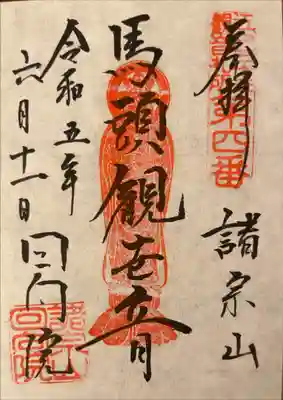 奉拝
第四番
諸宗山
馬頭觀世音
令和五年
六月十一日
回向院